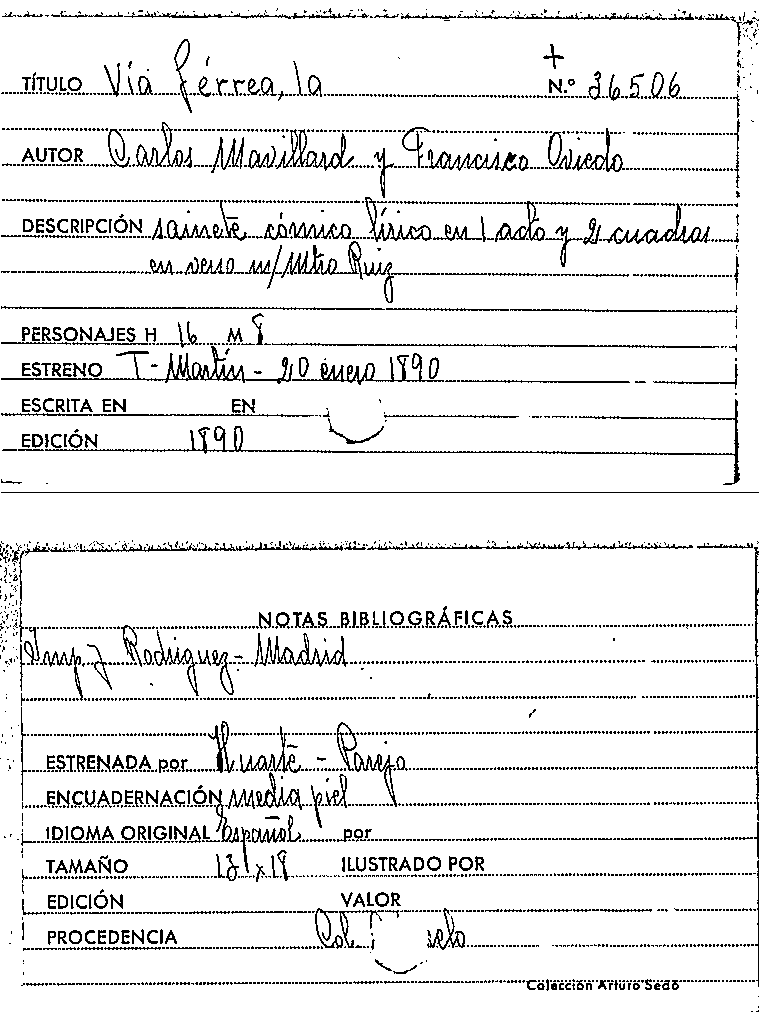 TÍTULO Vía férrea, la
+
N.º 36506
AUTOR Carlos Mavillard y Francisco Oviedo
DESCRIPCIÓN sainete cómico lírico en 1 acto y 2 cuadros
en verso m/ Mtro Ruiz
PERSONAJES H 16 M 8
ESTRENO T- Martín - 20 enero 1890
ESCRITA EN EN
EDICIÓN 1890
NOTAS BIBLIOGRÁFICAS
Imp J Rodriguez - Madrid
ESTRENADA por Huarte - Parejo
ENCUADERNACIÓN media piel
IDIOMA ORIGINAL Español por
TAMAÑO 13 x 19 ILUSTRADO POR
EDICIÓN VALOR
PROCEDENCIA Col.
Colección Arturo Sedó